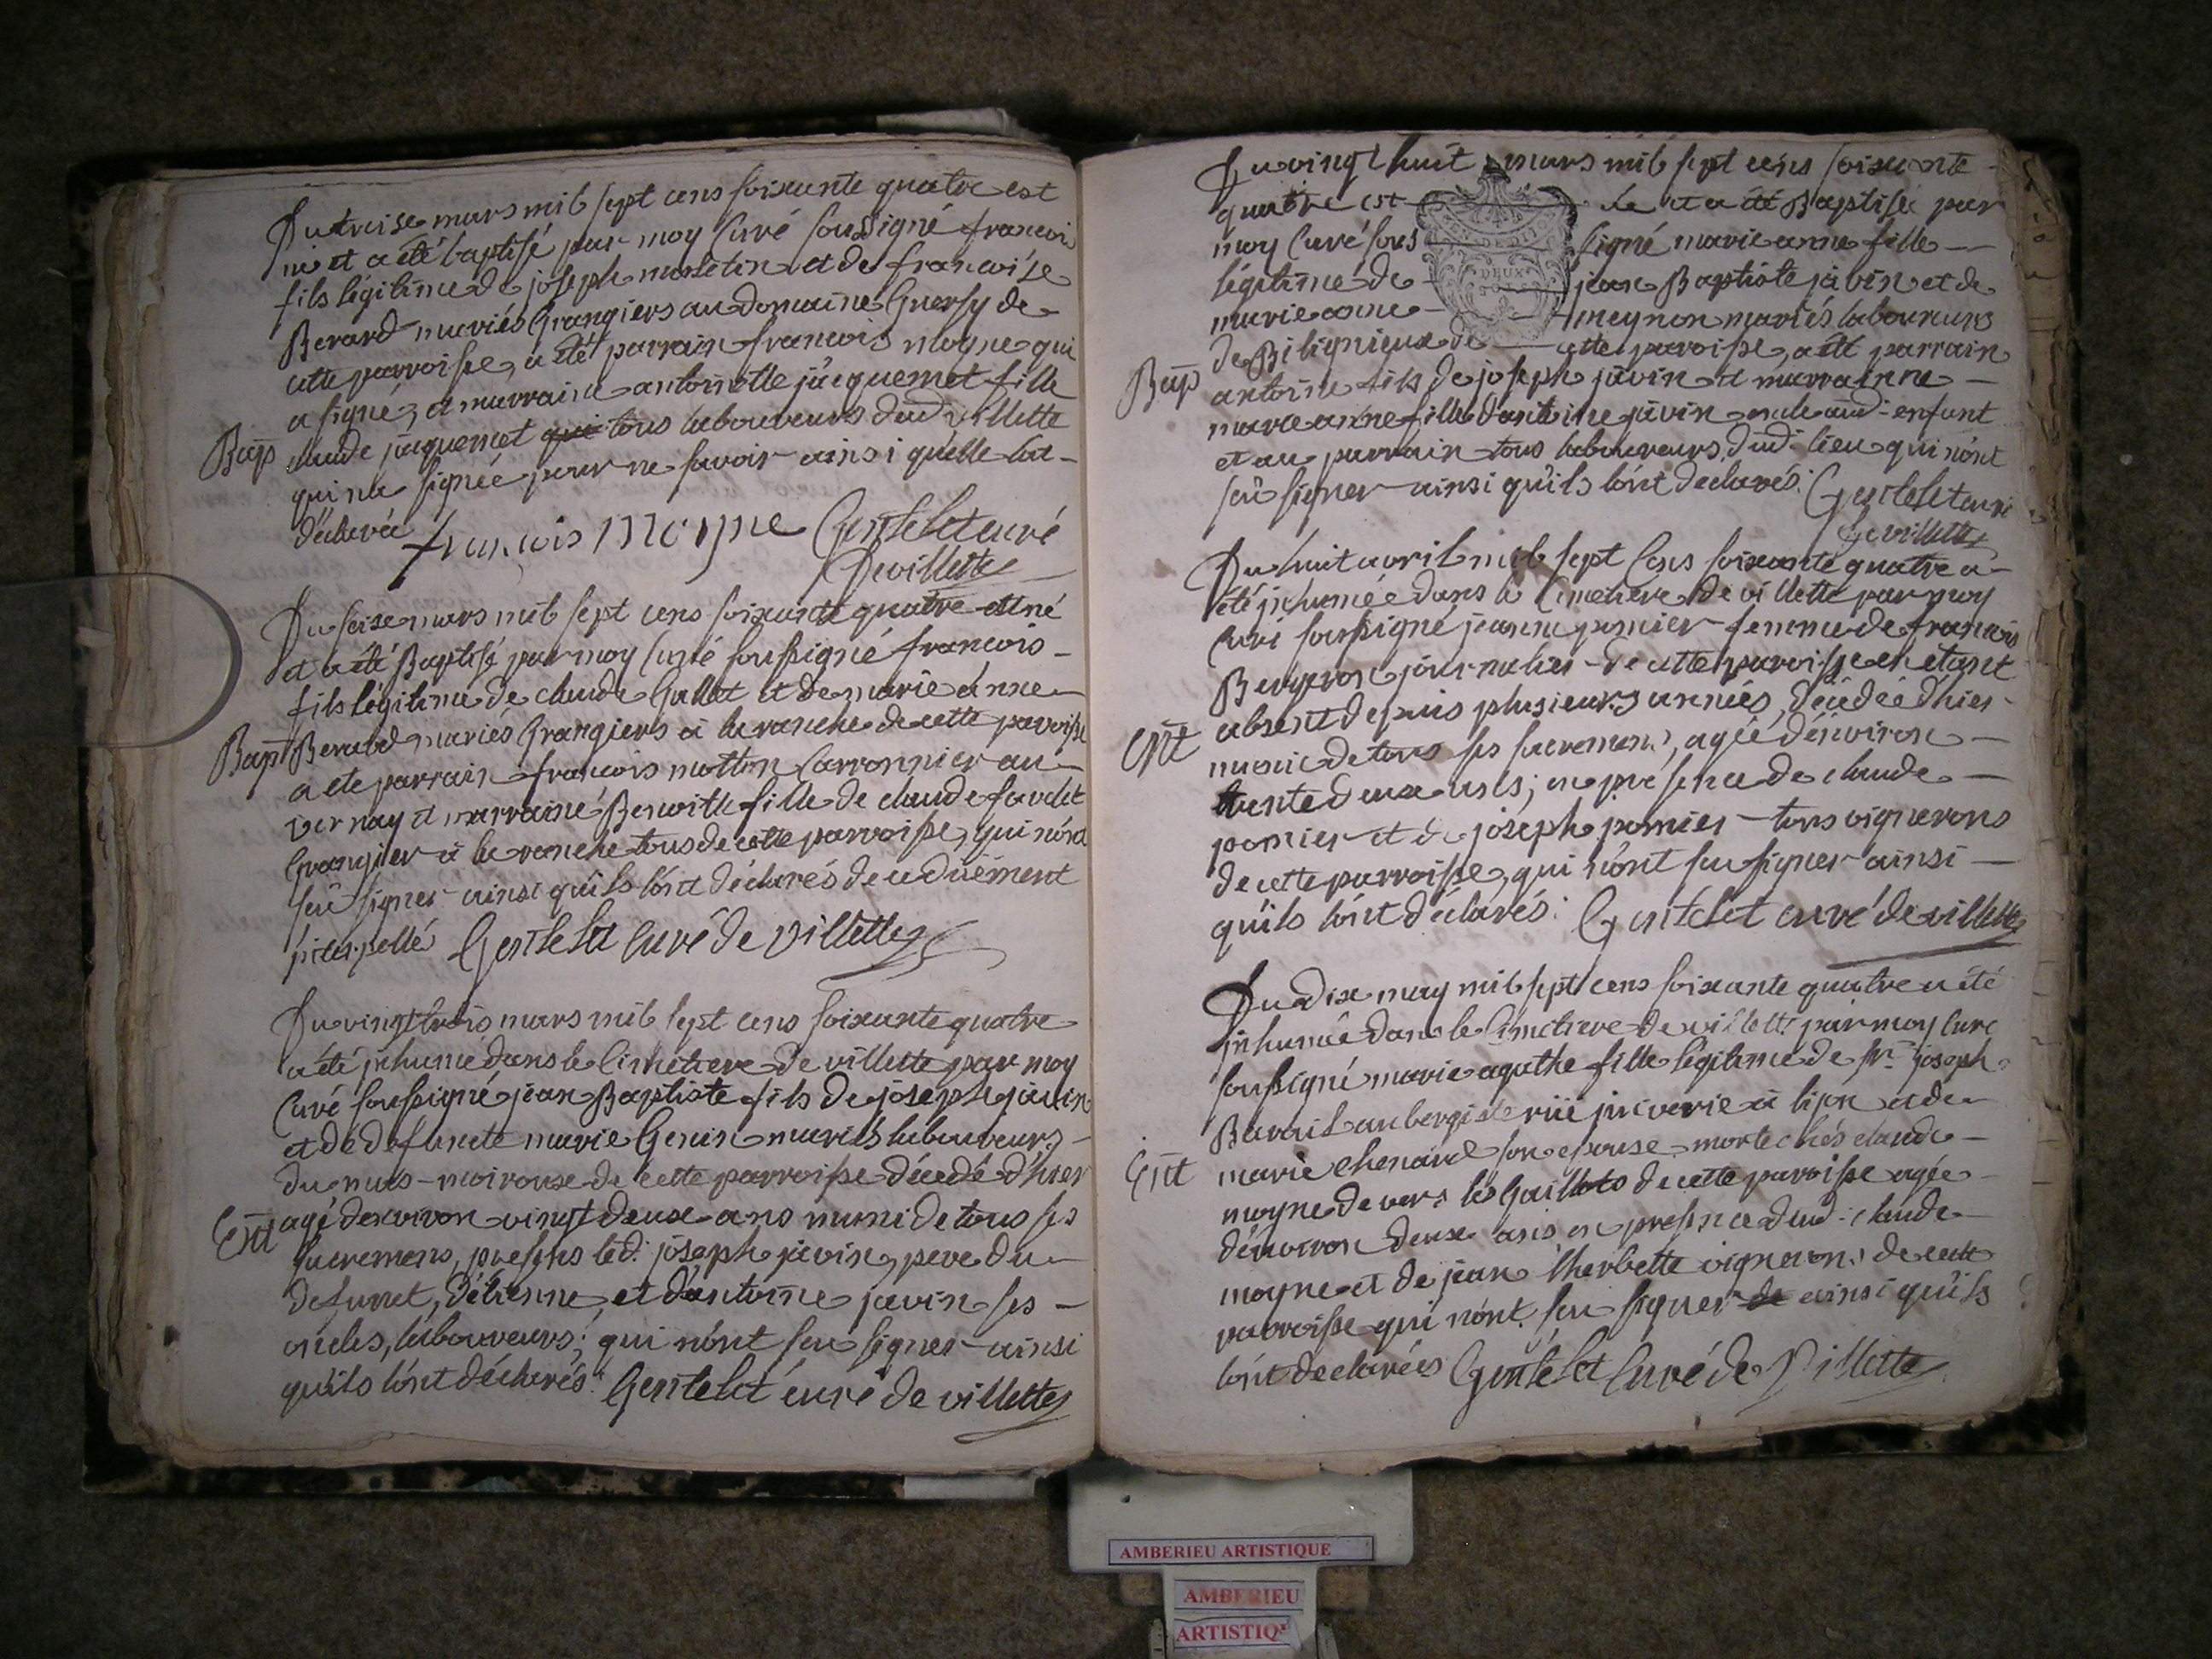 Du treise mars mil sept cens soixante quatre est
né et a été baptisé par moy curé soussigné francois
fils légitime de joseph et de francoise
Berard mariés Grangiers au domaine Guersy de
cette parroisse, a été parrain francois moyne qui
a signé, et marraine antoinette jacquemet fille
Bap claude jaquemet qui tous laboureurs dud villette
qui n'a signée pour ne savoir ainsi quelle l'at
déclarée françois Moyne Gentelet curé
De villette
Du seise mars mil sept cens soixante quatre est né
et a été Baptisé par moy curé soussigné francois
fils légitime de claude Gallet et de marie anne
Bapt Berard mariés Grangiers a la ranche de cette paroisse
a ete parrain francois motton Carronnier au
vernay et marraine Benoitte fille de claude favolet
Grangier a la ranche tous de cette parroisse, qui n'ont
sçû signer ainsi qu'ils l'ont déclarés de ce duëment
interpellé Gentelet Curé de villette
Du vingt trois mars mil sept cens soixante quatre
a été inhumé dans le cimetiere de villette par moy
Curé soussigné jean Baptiste fils de joseph javin
et de defuncte marie Genin mariés laboureurs
du mas-noirouse de cette parroisse décedé d'hier
Ent agé d'environ vingt deux ans muni de tous ses
sacremens, presens led: joseph javin, pere du
defunct, d'étienne et d'antoine javin ses
oncles, laboureurs; qui n'ont sçu signer ainsi
qu'ils l'ont déclarés: Gentelet curé de villette
Du vingt huit mars mil sept cens soixante
quatre est née et a été Baptisée par
moy Curé sous signé marie anne fille
légitime de jean Baptiste javin et de
marie anne meynon mariés laboureurs
de Bilignieux de cette paroisse, a été parrain
Bap antoine fils de joseph javin et marrainne
marie anne fille d'antoine javin oncle aud: enfant
et au parrain tous laboureurs dud: lieu qui n'ont
sçû signer ainsi qu'ils l'ont declarés: Gentelet curé
de villette
Du huit avril mil sept Cens soixante quatre a
été inhumée dans le Cimetiere de villette par moy
Curé soussigné jeanne pomier femme de francois
Bergeron journalier de cette parroisse en etant
absent depuis plusieurs années, décedée d'hier
Ent munie de tous ses sacremens, agée d'environ
trente deux ans; en présence de claude
pomier et de joseph pomier tous vignerons
de cette parroisse, qui n'ont sçu signer ainsi
qu'ils l'ont déclarés: Gentelet curé de villette
Du dix may mil sept cens soixante quatre a été
inhumée dans le cimetiere de villette par moy curé
soussigné marie agathe fille légitime de sr. joseph
Barail aubergiste rüe juiverie a lion et de
Ent marie chenard son epouse morte chés claude
moyne de vers les Gaillots de cette paroisse agée
d'environ deux ans en presence dud: claude
moyne et de jean l'herbette vignerons de cette
parroisse qui n'ont sçu signer de ainsi qu'ils
l'ont declarées Gentelet Curé de Villette
AMBERIEU ARTISTIQUE
AMBERIEU
ARTISTIQ